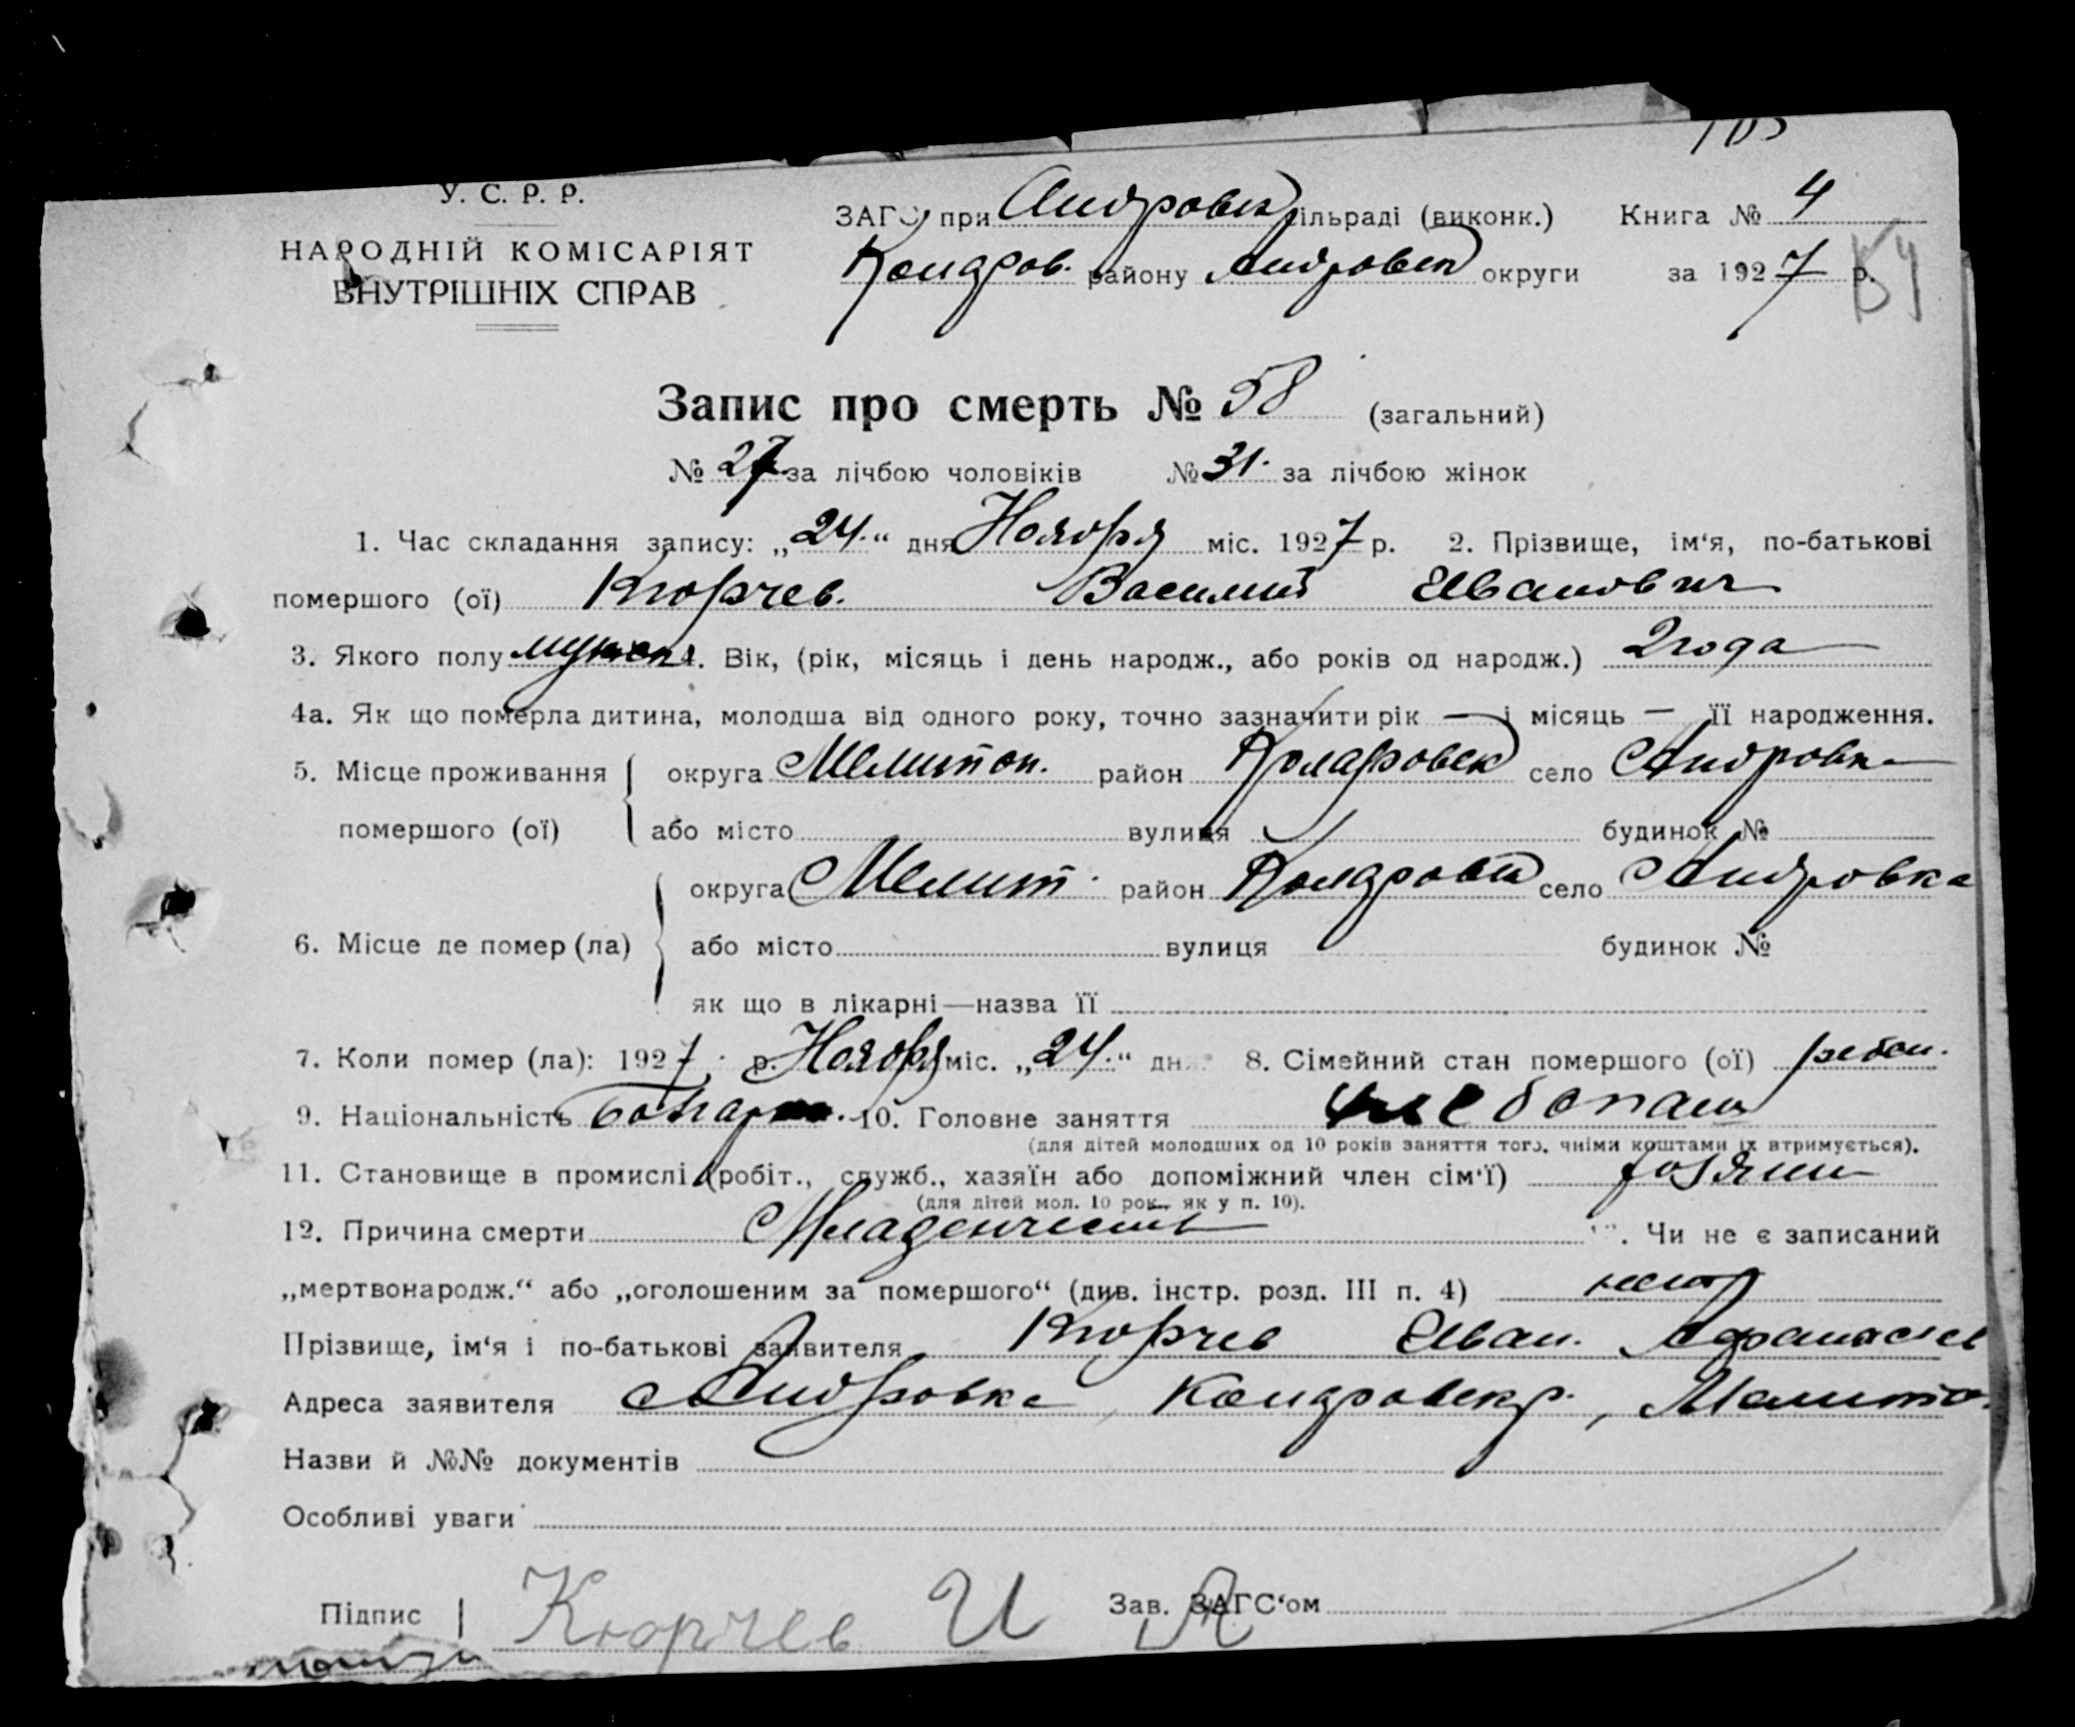 У. С. Р. Р.
НАРОДНІЙ КОМІСАРІЯТ
ВНУТРІШНІХ СПРАВ
ЗАГС при Андровск сільраді (виконк.) Книга № 4
району Андровск округи за 1927 р.
Запис про смерть № 58 (загальний)
№ 27 за лічбою чоловіків № 31. за лічбою жінок
1. Час складання запису: „24.“ дня Ноября міс. 1927 р. 2. Прізвище, ім‘я, по-батькові
помершого (ої) Кюрчев. Василий Иванович
3. Якого полу мужск 4. Вік, (рік, місяць і день народж., або років од народж.) 2 года
4а. Як що померла дитина, молодша від одного року, точно зазначити рік — і місяць — її народження.
5. Місце проживання округа Мелитоп. район село Андровка
помершого (ої) або місто вулиця будинок №
округа Мелит. район село Андровка
6. Місце де помер (ла) або місто вулиця будинок №
як що в лікарні—назва її
7. Коли помер (ла): 1927 р. Ноября міс. „24.“ дн 8. Сімейний стан помершого (ої) ребен.
9. Національність 10. Головне заняття хлебопаш
(для дітей молодших од 10 років заняття того, чиїми коштами їх втримується).
11. Становище в промислі (робіт., служб., хазяїн або допоміжний член сім‘ї) хозяин
(для дітей мол. 10 рок., як у п. 10).
12. Причина смерти Младенческ . Чи не є записаний
„мертвонародж.“ або „оголошеним за помершого“ (див. інстр. розд. III п. 4)
Прізвище, ім‘я і по-батькові заявителя Кюрчев Иван. Афанасиев
Адреса заявителя Андровка, р., Мелито.
Назви й №№ документів
Особливі уваги
Підпис Кюрчев И А Зав. ЗАГС‘ом